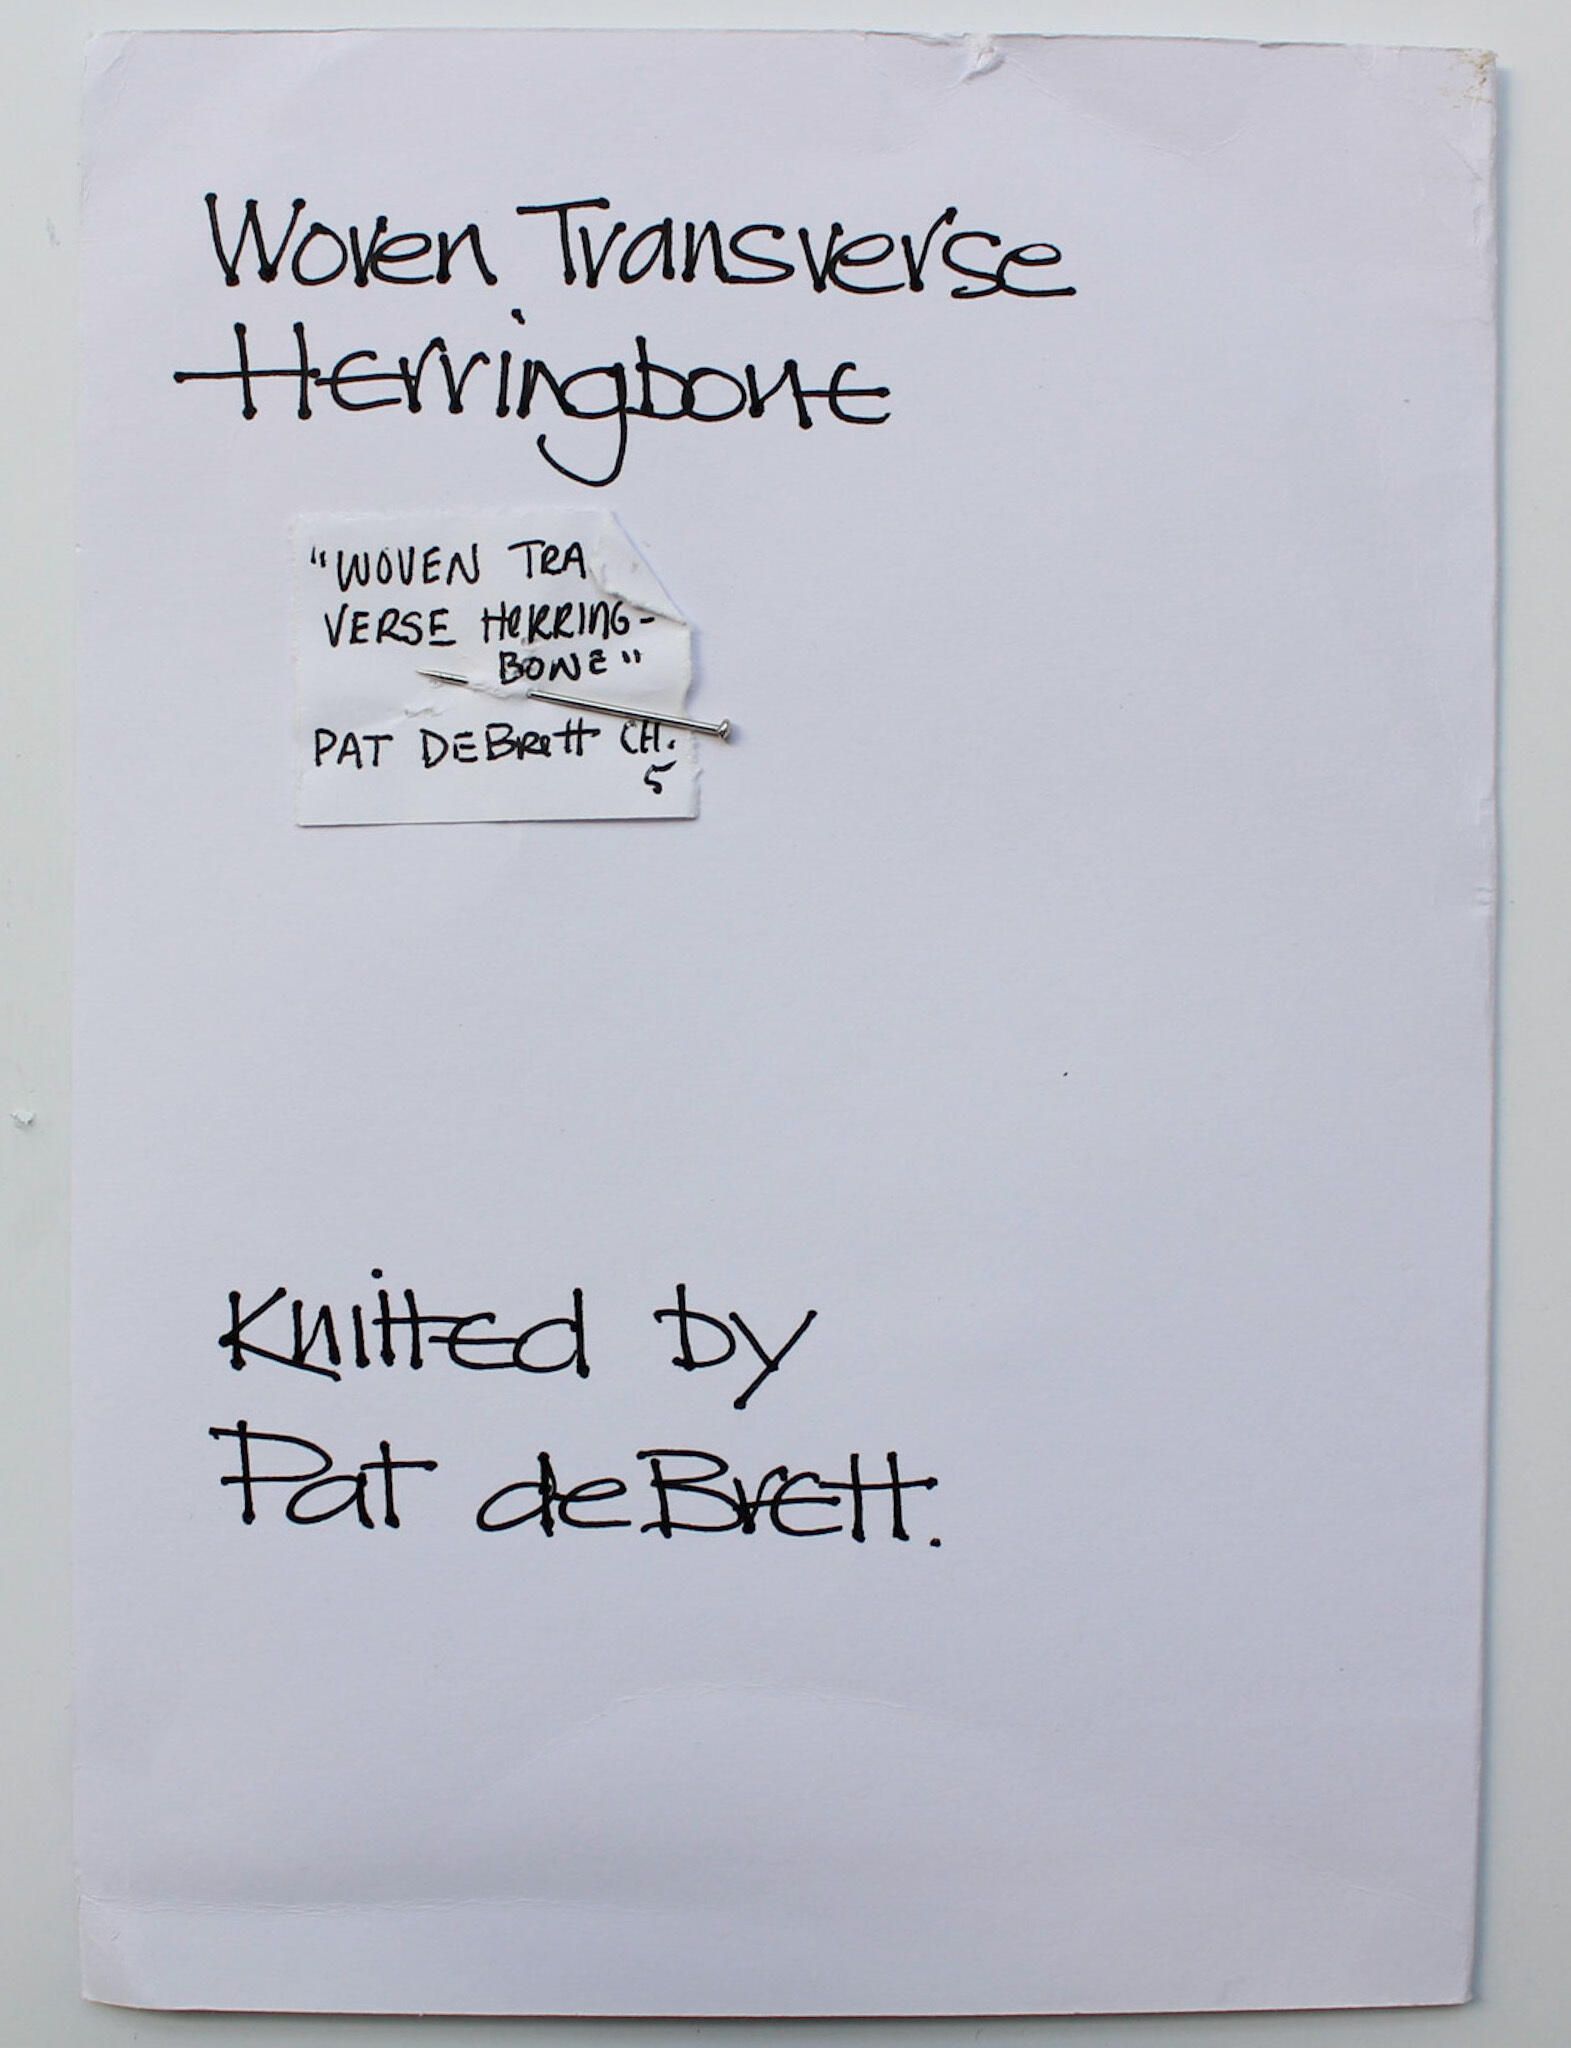 Woven Transverse
Herringbone
"WOVEN TRA
VERSE HERRING-
BONE"
PAT DEBRett CH.
5
Knitted by
Pat deBrett.